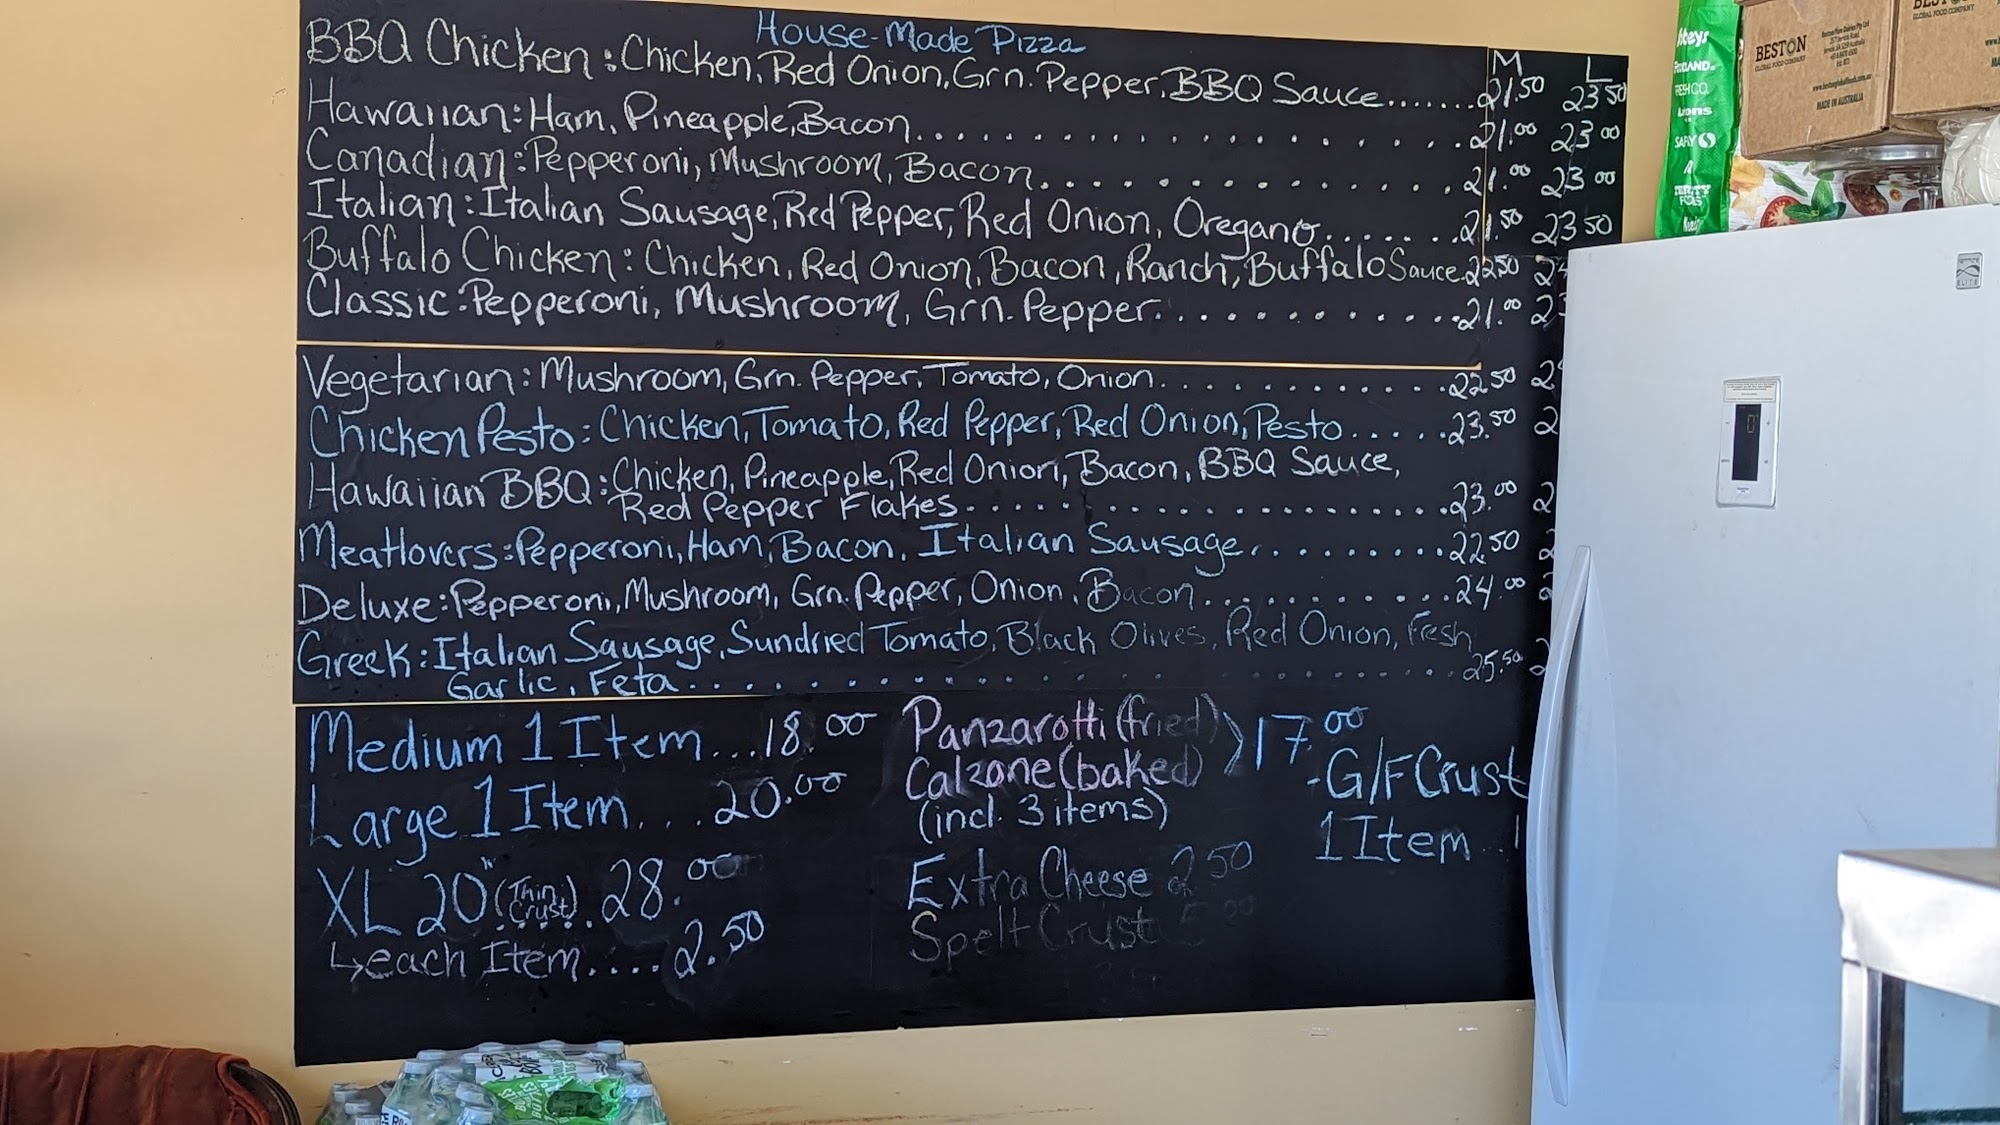 House-Made Pizza
M L
BBQ Chicken: Chicken, Red Onion, Grn. Pepper, BBQ Sauce....... 21.50 23.50
Hawaiian: Ham, Pineapple, Bacon.................. 21.00 23.00
Canadian: Pepperoni, Mushroom, Bacon.............. 21.00 23.00
Italian: Italian Sausage, Red Pepper, Red Onion, Oregano....... 21.50 23.50
Buffalo Chicken: Chicken, Red Onion, Bacon, Ranch, Buffalo Sauce. 22.50
Classic: Pepperoni, Mushroom, Grn. Pepper............. 21.00
Vegetarian: Mushroom, Grn. Pepper, Tomato, Onion............. 22.50
Chicken Pesto: Chicken, Tomato, Red Pepper, Red Onion, Pesto...... 23.50
Hawaiian BBQ: Chicken, Pineapple, Red Onion, Bacon, BBQ Sauce,
Red Pepper Flakes.................... 23.00
Meatlovers: Pepperoni, Ham, Bacon, Italian Sausage.......... 22.50
Deluxe: Pepperoni, Mushroom, Grn. Pepper, Onion, Bacon........... 24.00
Greek: Italian Sausage, Sundried Tomato, Black Olives, Red Onion, Fresh
Garlic, Feta.................... 25.50
Medium 1 Item...18.00
Large 1 Item....20.00
XL 20" (Thin Crust)..... 28.00
↳each Item....2.50
Panzarotti (fried)
Calzone (baked) >17.00
(incl. 3 items)
Extra Cheese 2.50
Spelt Crust 5.00
-G/F Crust
1 Item
BESTON
GLOBAL FOOD COMPANY
MADE IN AUSTRALIA
FRESH CO.
ELITE